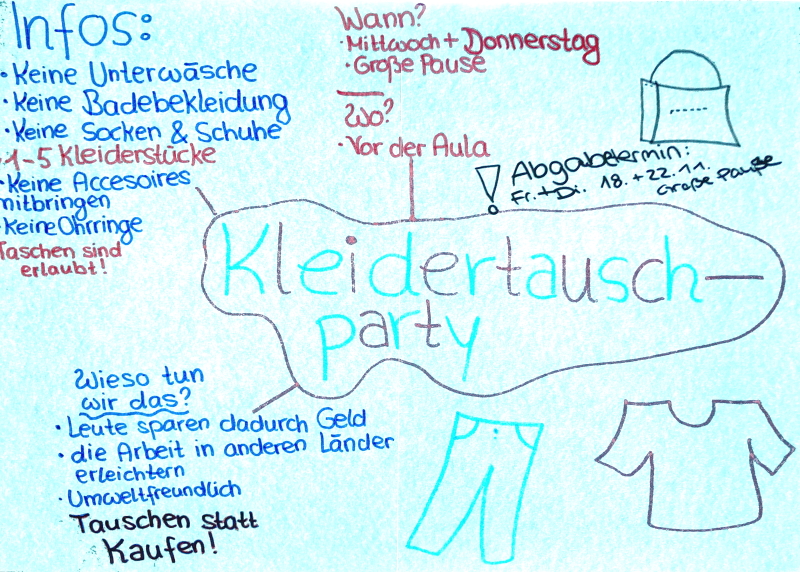 Infos:
• Keine Unterwäsche
• Keine Badebekleidung
• Keine Socken & Schuhe
1-5 Kleiderstücke
• Keine Accesoires
mitbringen
• Keine Ohrringe
Taschen sind
erlaubt!
Wann?
• Mittwoch + Donnerstag
• Große Pause
Wo?
• Vor der Aula
! Abgabetermin:
Fr. + Di. 18. + 22.11.
Große Pause
Kleidertausch-
party
Wieso tun
wir das?
• Leute sparen dadurch Geld
• die Arbeit in anderen Länder
erleichtern
• Umweltfreundlich
Tauschen statt
Kaufen!